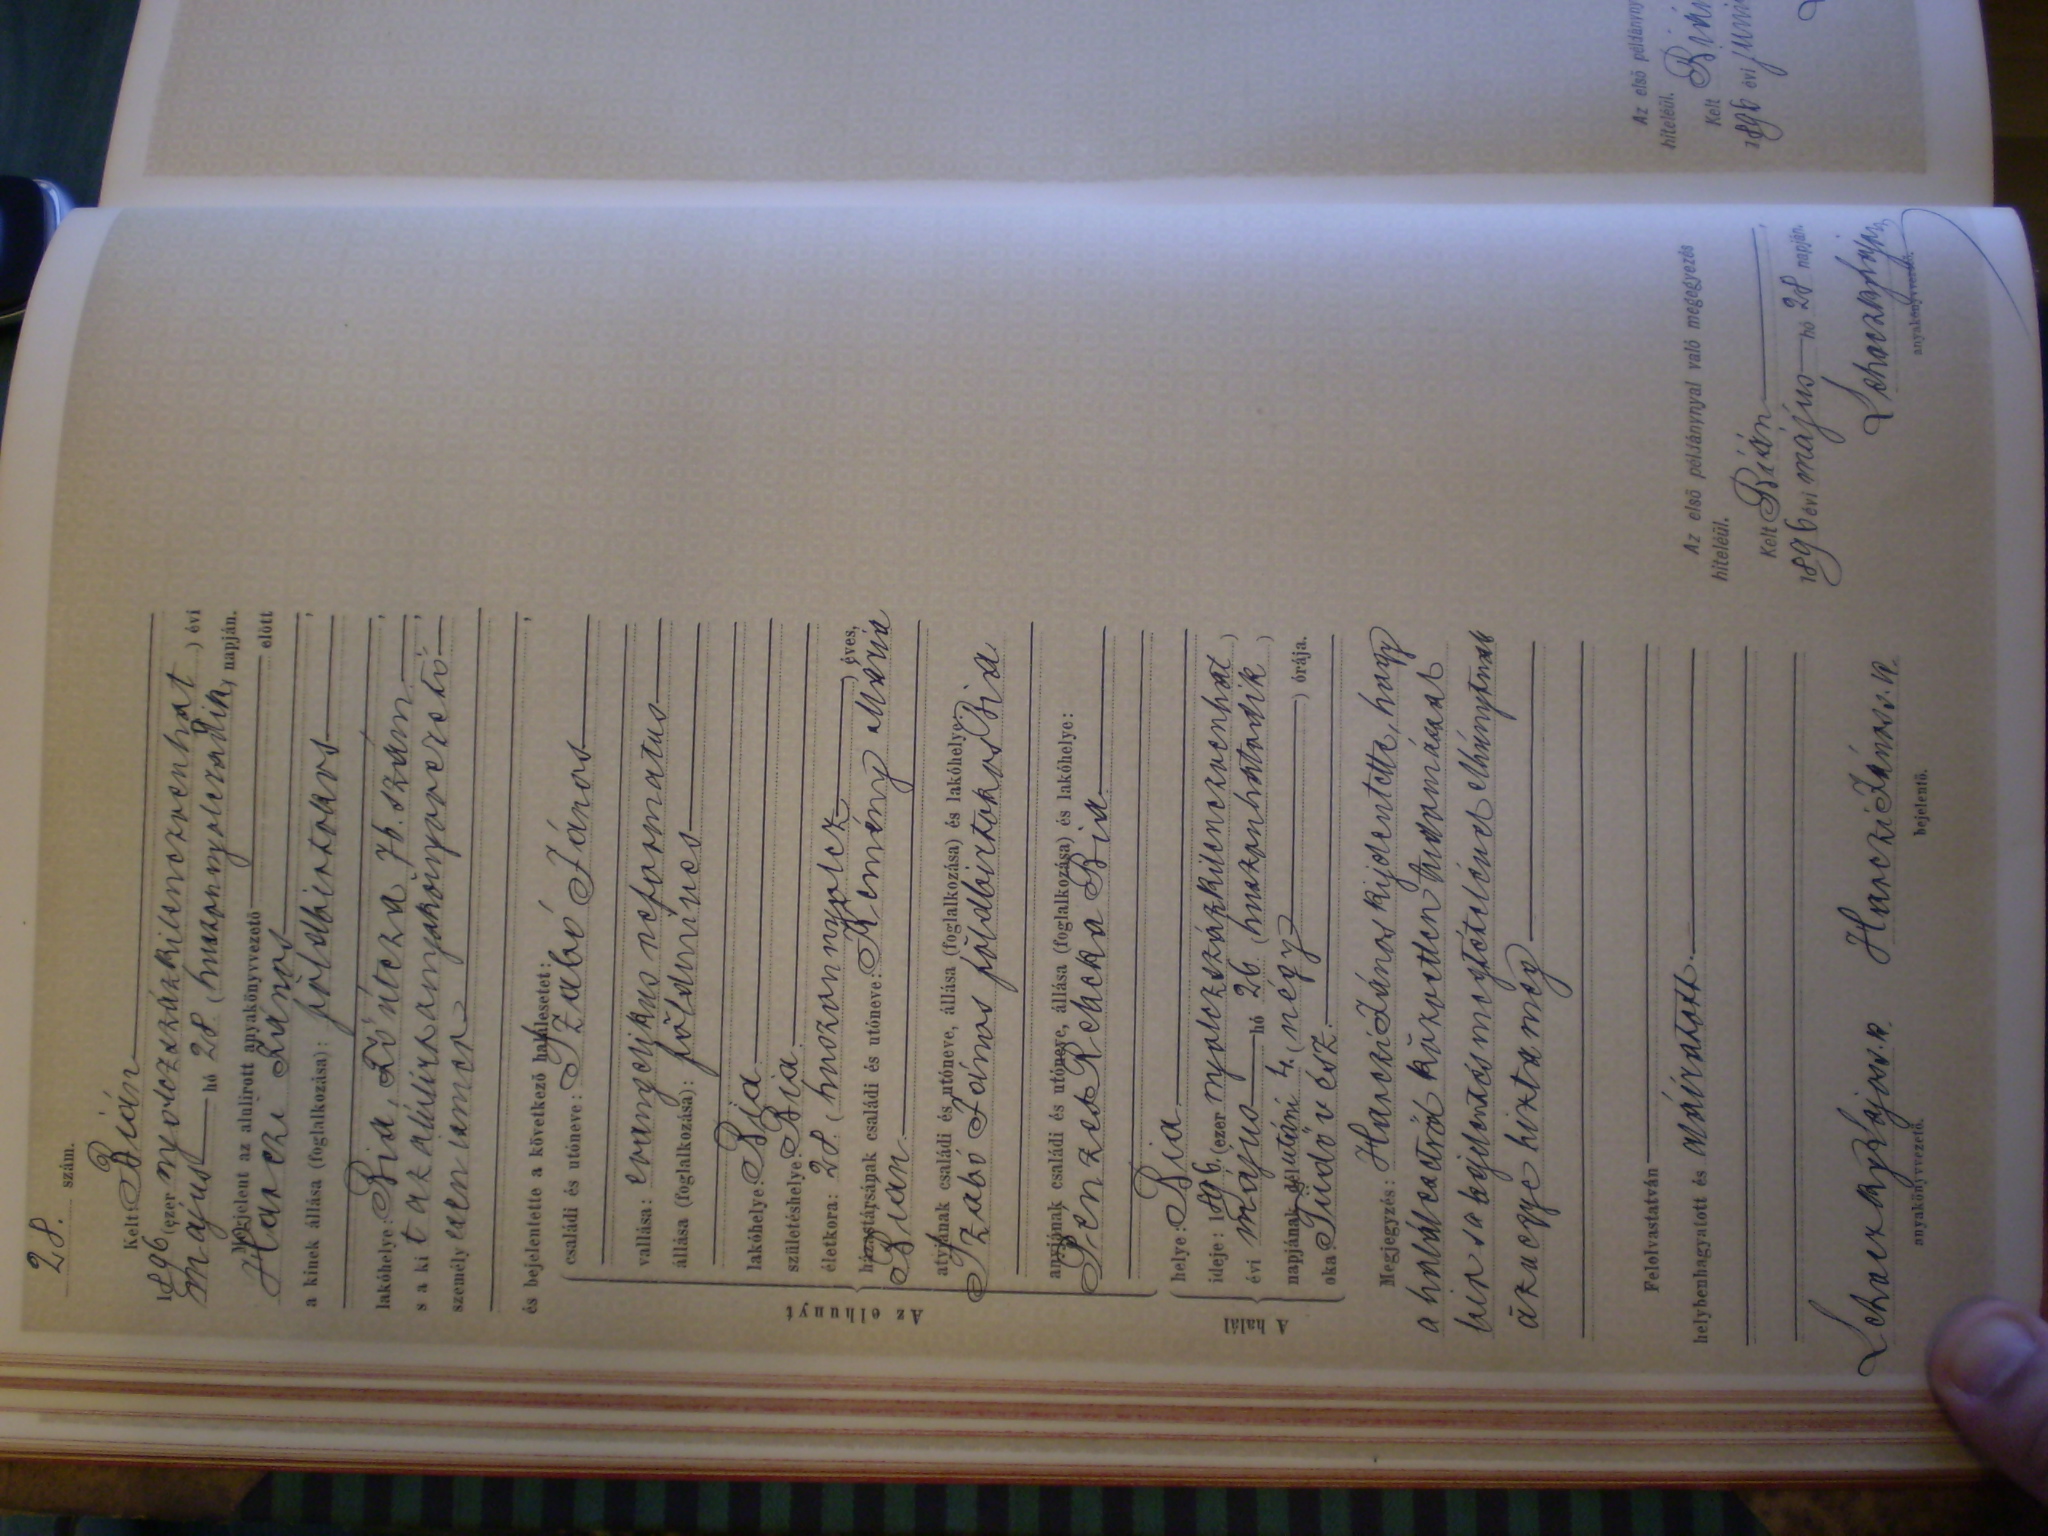 28. szám.
Kelt: Bián
1896 (ezer nyolczszázkilenczvenhat) évi
május hó 28. (huszonnyolczadik) napján.
Megjelent az alulirott anyakönyvvezető előtt
János
a kinek állása (foglalkozása): földbirtokos,
lakóhelye: Bia, 76. szám,
s a kit az alulirt anyakönyvvezető
személyesen ismer,
és bejelentette a következő halálesetet:
Az elhunyt
családi és utóneve: Szabó János
vallása: evangelikus reformatus
állása (foglalkozása): földmüves
lakóhelye: Bia
születéshelye: Bia.
életkora: 28. (huszonnyolcz) éves,
házastársának családi és utóneve: Kemény Mária
Bián.
atyjának családi és utóneve, állása (foglalkozása) és lakóhelye:
Szabó János földbirtokos Bia
anyjának családi és utóneve, állása (foglalkozása) és lakóhelye:
Pénzes Rebeka Bia.
A halál
helye: Bia.
ideje: 1896. (ezer nyolczszázkilenczvenhat)
évi május hó 26. (huszonhatodik)
napjának délutáni 4. (négy) órája.
oka: Tüdővész.
Megjegyzés: János kijelentette, hogy
a halálesetről közvetlen tudomással
bir s a bejelentés megtételével elhunytnak
Felolvastatván
helybenhagyatott és aláiratott.
anyakönyvvezető. bejelentő.
Az első példánynyal való megegyezés
hiteléül.
Kelt Bián,
1896 évi május hó 28 napján.
anyakönyvvezető.
Az első példányny
hiteléül.
Kelt Bián
1896 évi juni